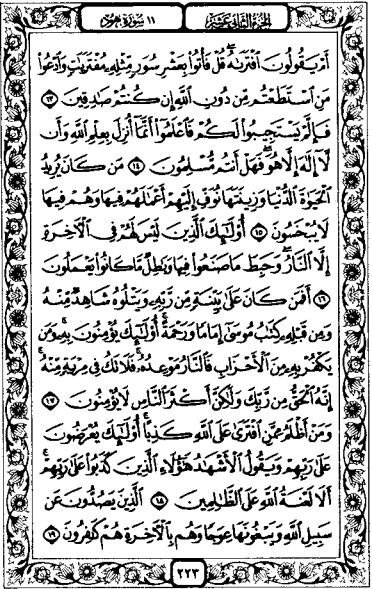 الجزء الثاني عشر
١١ سورة هود
أَمْ يَقُولُونَ ٱفْتَرَىٰهُ ۖ قُلْ فَأْتُوا۟ بِعَشْرِ سُوَرٍ مِّثْلِهِۦ مُفْتَرَيَٰتٍ وَٱدْعُوا۟
مَنِ ٱسْتَطَعْتُم مِّن دُونِ ٱللَّهِ إِن كُنتُمْ صَٰدِقِينَ ١٣
فَإِلَّمْ يَسْتَجِيبُوا۟ لَكُمْ فَٱعْلَمُوٓا۟ أَنَّمَآ أُنزِلَ بِعِلْمِ ٱللَّهِ وَأَن
لَّآ إِلَٰهَ إِلَّا هُوَ ۖ فَهَلْ أَنتُم مُّسْلِمُونَ ١٤ مَن كَانَ يُرِيدُ
ٱلْحَيَوٰةَ ٱلدُّنْيَا وَزِينَتَهَا نُوَفِّ إِلَيْهِمْ أَعْمَٰلَهُمْ فِيهَا وَهُمْ فِيهَا
لَا يُبْخَسُونَ ١٥ أُو۟لَٰٓئِكَ ٱلَّذِينَ لَيْسَ لَهُمْ فِى ٱلْءَاخِرَةِ
إِلَّا ٱلنَّارُ ۖ وَحَبِطَ مَا صَنَعُوا۟ فِيهَا وَبَٰطِلٌ مَّا كَانُوا۟ يَعْمَلُونَ
١٦ أَفَمَن كَانَ عَلَىٰ بَيِّنَةٍ مِّن رَّبِّهِۦ وَيَتْلُوهُ شَاهِدٌ مِّنْهُ
وَمِن قَبْلِهِۦ كِتَٰبُ مُوسَىٰٓ إِمَامًا وَرَحْمَةً ۚ أُو۟لَٰٓئِكَ يُؤْمِنُونَ بِهِۦ ۚ وَمَن
يَكْفُرْ بِهِۦ مِنَ ٱلْأَحْزَابِ فَٱلنَّارُ مَوْعِدُهُۥ ۚ فَلَا تَكُ فِى مِرْيَةٍ مِّنْهُ ۚ
إِنَّهُ ٱلْحَقُّ مِن رَّبِّكَ وَلَٰكِنَّ أَكْثَرَ ٱلنَّاسِ لَا يُؤْمِنُونَ ١٧
وَمَنْ أَظْلَمُ مِمَّنِ ٱفْتَرَىٰ عَلَى ٱللَّهِ كَذِبًا ۚ أُو۟لَٰٓئِكَ يُعْرَضُونَ
عَلَىٰ رَبِّهِمْ وَيَقُولُ ٱلْأَشْهَٰدُ هَٰٓؤُلَآءِ ٱلَّذِينَ كَذَبُوا۟ عَلَىٰ رَبِّهِمْ ۚ
أَلَا لَعْنَةُ ٱللَّهِ عَلَى ٱلظَّٰلِمِينَ ١٨ ٱلَّذِينَ يَصُدُّونَ عَن
سَبِيلِ ٱللَّهِ وَيَبْغُونَهَا عِوَجًا وَهُم بِٱلْءَاخِرَةِ هُمْ كَٰفِرُونَ ١٩
٢٢٣